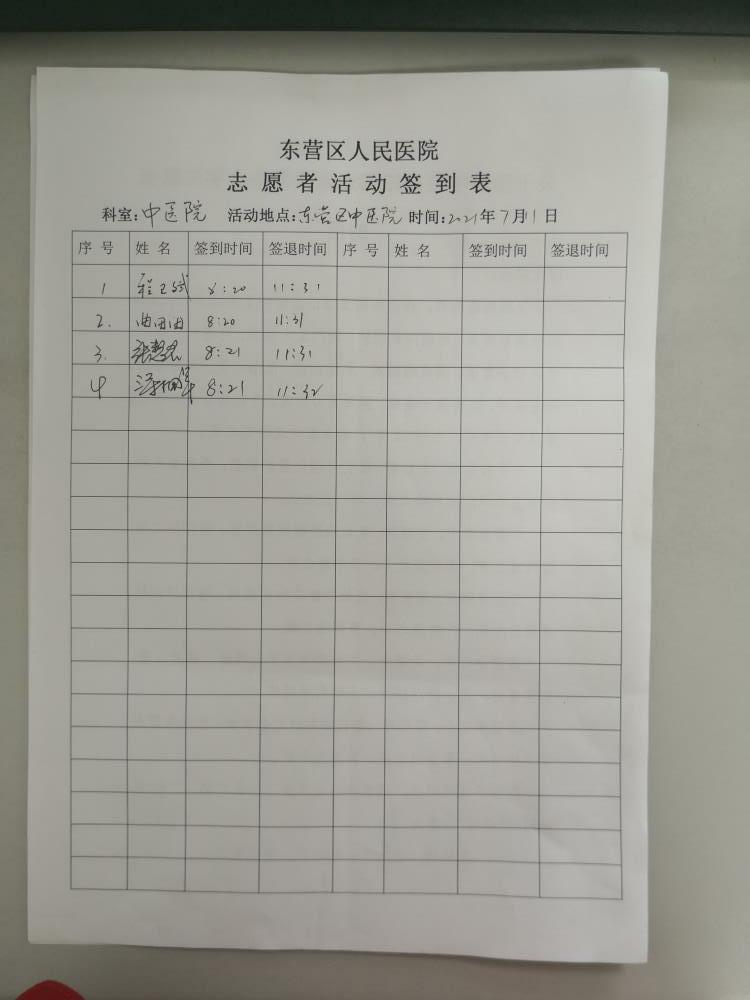 东营区人民医院
志愿者活动签到表
科室:中医院 活动地点:东营区中医院 时间:2021年7月11日
序号 姓名 签到时间 签退时间 序号 姓名 签到时间 签退时间
1 8:20 11:31
2. 曲田田 8:20 11:31
3. 8:21 11:31
4 8:21 11:32